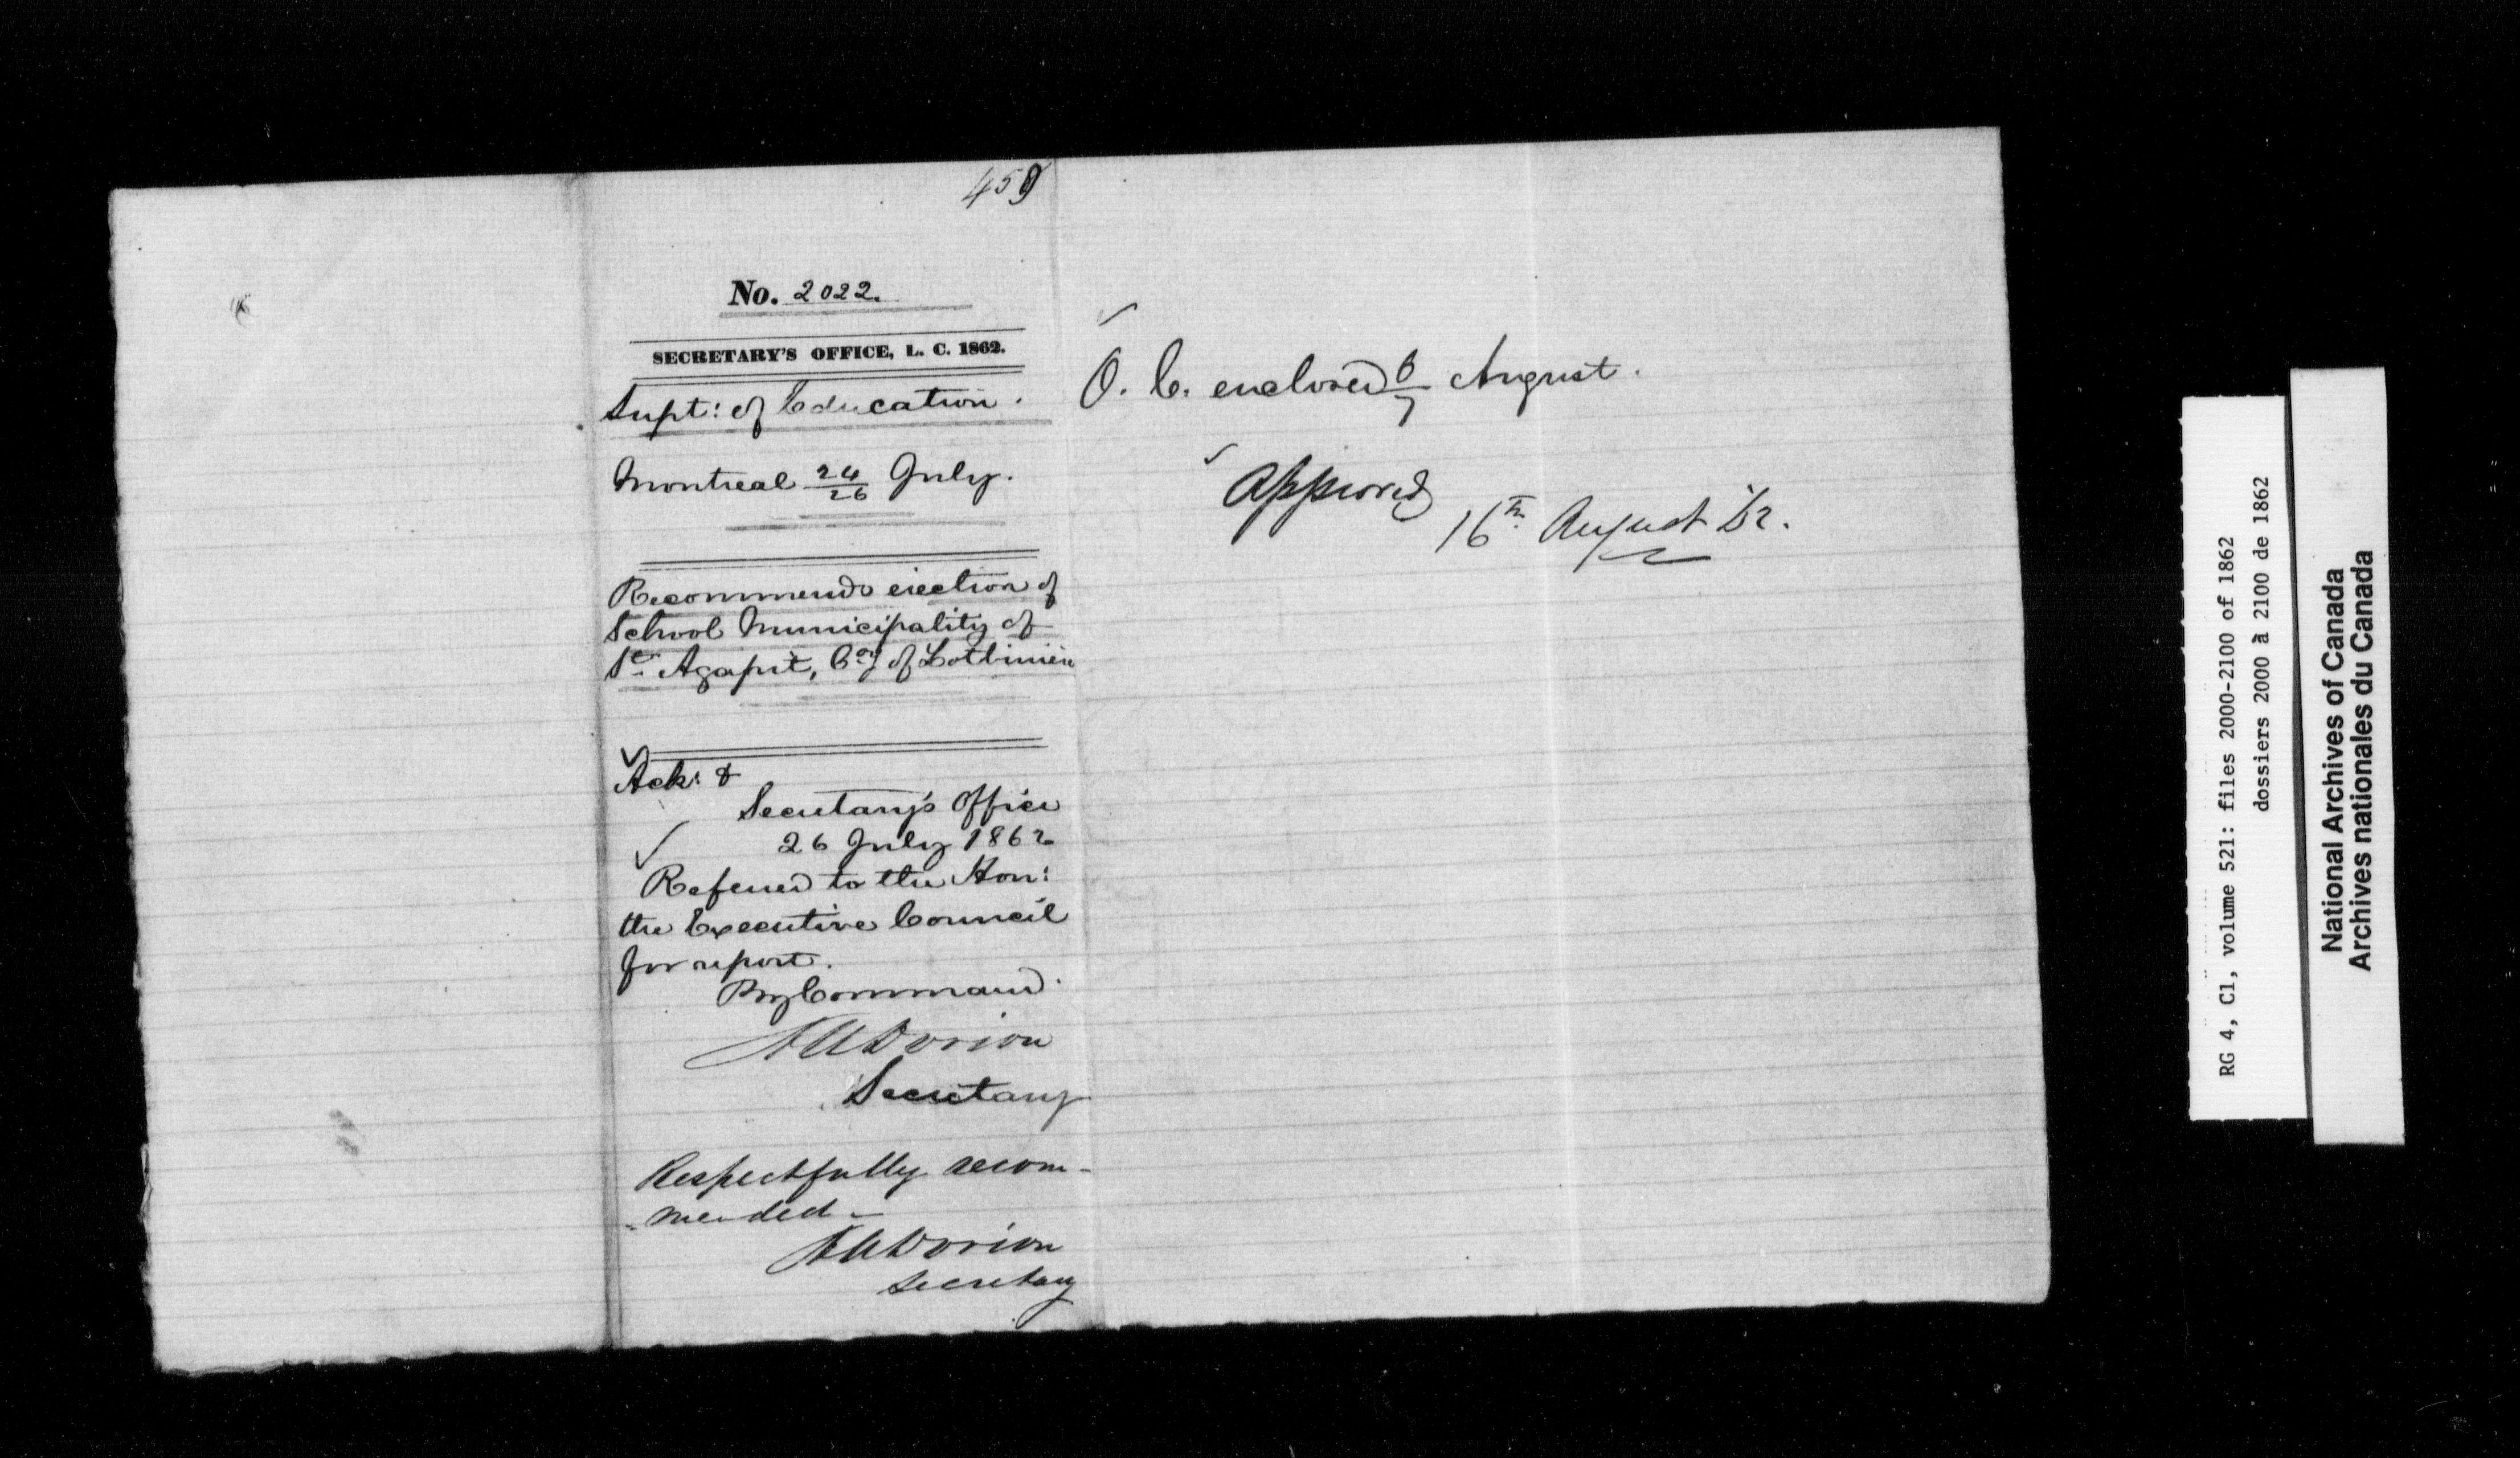 459
No. 2022.
SECRETARY'S OFFICE, L. C. 1862.
Supt: of Education.
Montreal 24/26 July.
Recommends erection of
School Municipality of
St. Agapit, Coy of Lotbinière
Ack: &
Secretary's Office
26 July 1862
Referred to the Hon:
the Executive Council
for report.
By Command.
AADorion
Secretary
Respectfully recom-
-mended-
AADorion
Secretary
O. C. enclosed 6/7 August.
Approved
16th August 62.
RG 4, C1, volume 521: files 2000-2100 of 1862
dossiers 2000 à 2100 de 1862
National Archives of Canada
Archives nationales du Canada